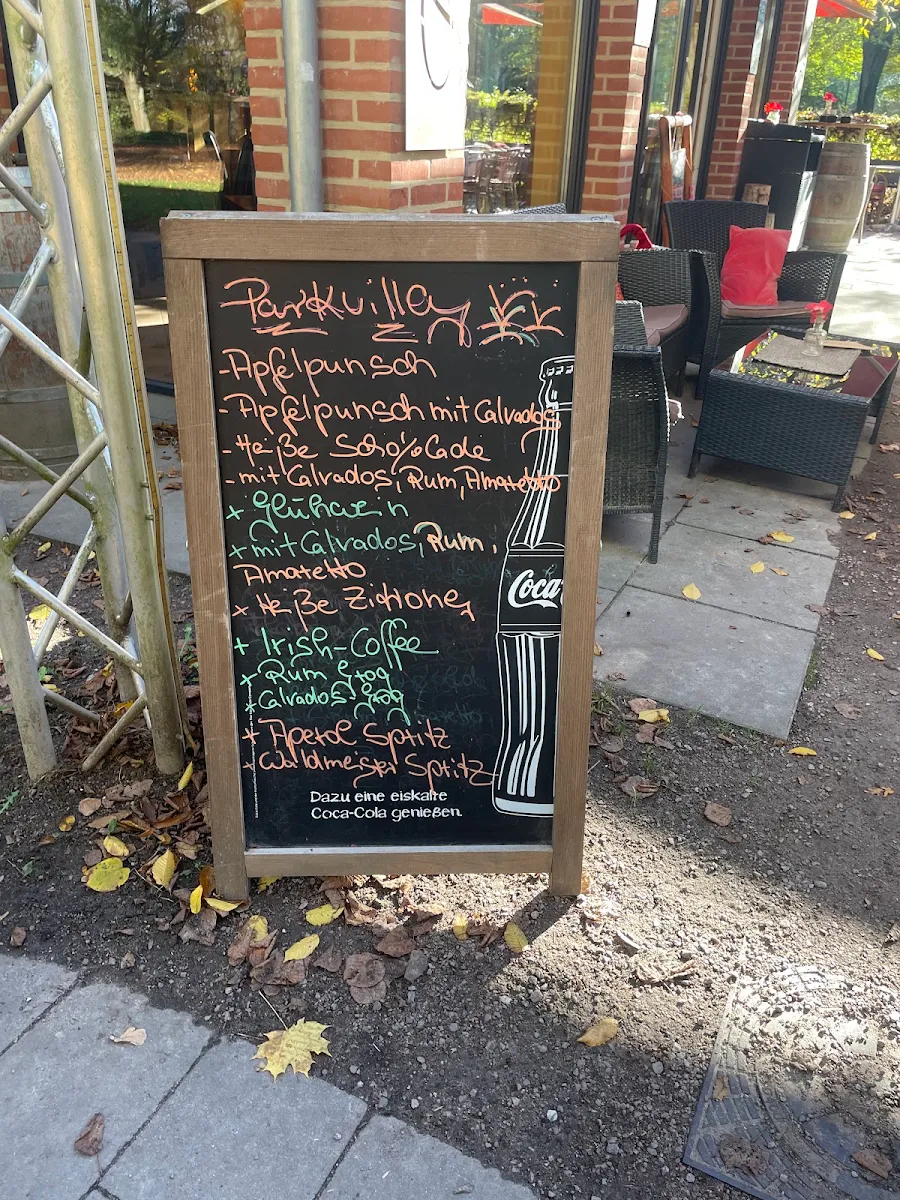 Parkvilley
-Apfelpunsch
-Apfelpunsch mit Calvados
-Heiße Schokolade
-mit Calvados, Rum, Amaretto
x Glühwein
x mit Calvados, Rum,
Amaretto
x Heiße Zitrone
+ Irish-Coffee
x Rum Grog
Calvados Grog
+ Aperol Spritz
Waldmeister Spritz
Coca
Dazu eine eiskalte
Coca-Cola genießen.